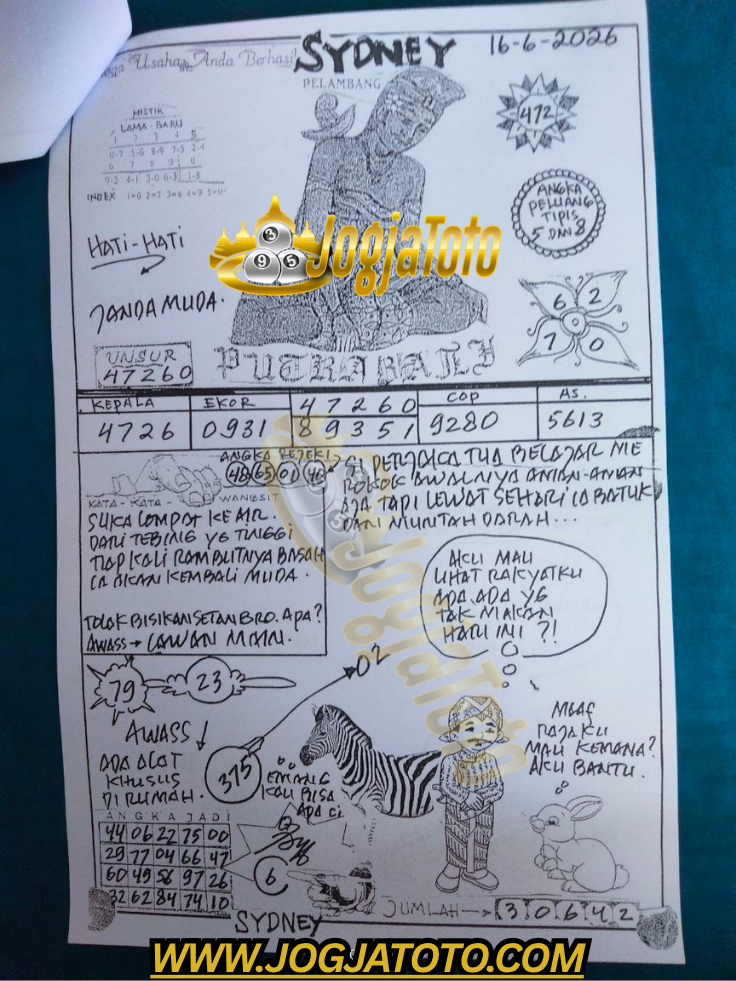 Usaha Anda Berhasil
SYDNEY
16-6-2026
PELAMBANG
MISTIK
LAMA - BARU
1 2 3 4 5
0-7 5-6 8-9 7-5 2-4
6 7 8 9 0
9-2 4-1 3-0 6-3 1-8
INDEX 1=6 2=7 3=8 4=9 5=0
472
ANGKA
PELUANG
TIPIS
5 DAN 8
HATI-HATI
JogjaToto
3
9 5
JANDA MUDA.
6 2
7 0
UNSUR
47260
PUTRA BALI
KEPALA
EKOR
47260
COP
AS.
4726
0931
89351
9280
5613
ANGKA REJEKI
48 65 01 40
SI PERJAKA TUA BELAJAR ME
ROKOK AWALNYA ANIAN-ANIAN
AJA TAPI LEWAT SEHARI IA BATUK
DAN MUNTAH DARAH...
KATA - KATA - WANGSIT
SUKA LOMPAT KE AIR.
DARI TEBING YG TINGGI
TIAP KALI RAMBUTNYA BASAH
IA AKAN KEMBALI MUDA.
TOLAK BISIKAN SETAN BRO. APA?
AWASS → LAWAN MAIN.
AKU MAU
LIHAT RAKYATKU
ADA. ADA YG
TAK MAKAN
HARI INI ?!
JogjaToto
79
23
02
AWASS!
ADA ALAT
KHUSUS
DI RUMAH.
375
EMANG
KAU BISA
APA CI
RAJAKU
MAU KEMANA?
AKU BANTU.
ANGKA JADI
44 06 22 75 00
29 77 04 66 47
60 49 58 97 26
32 62 84 74 10
6
JUMLAH → 30642
SYDNEY
WWW.JOGJATOTO.COM